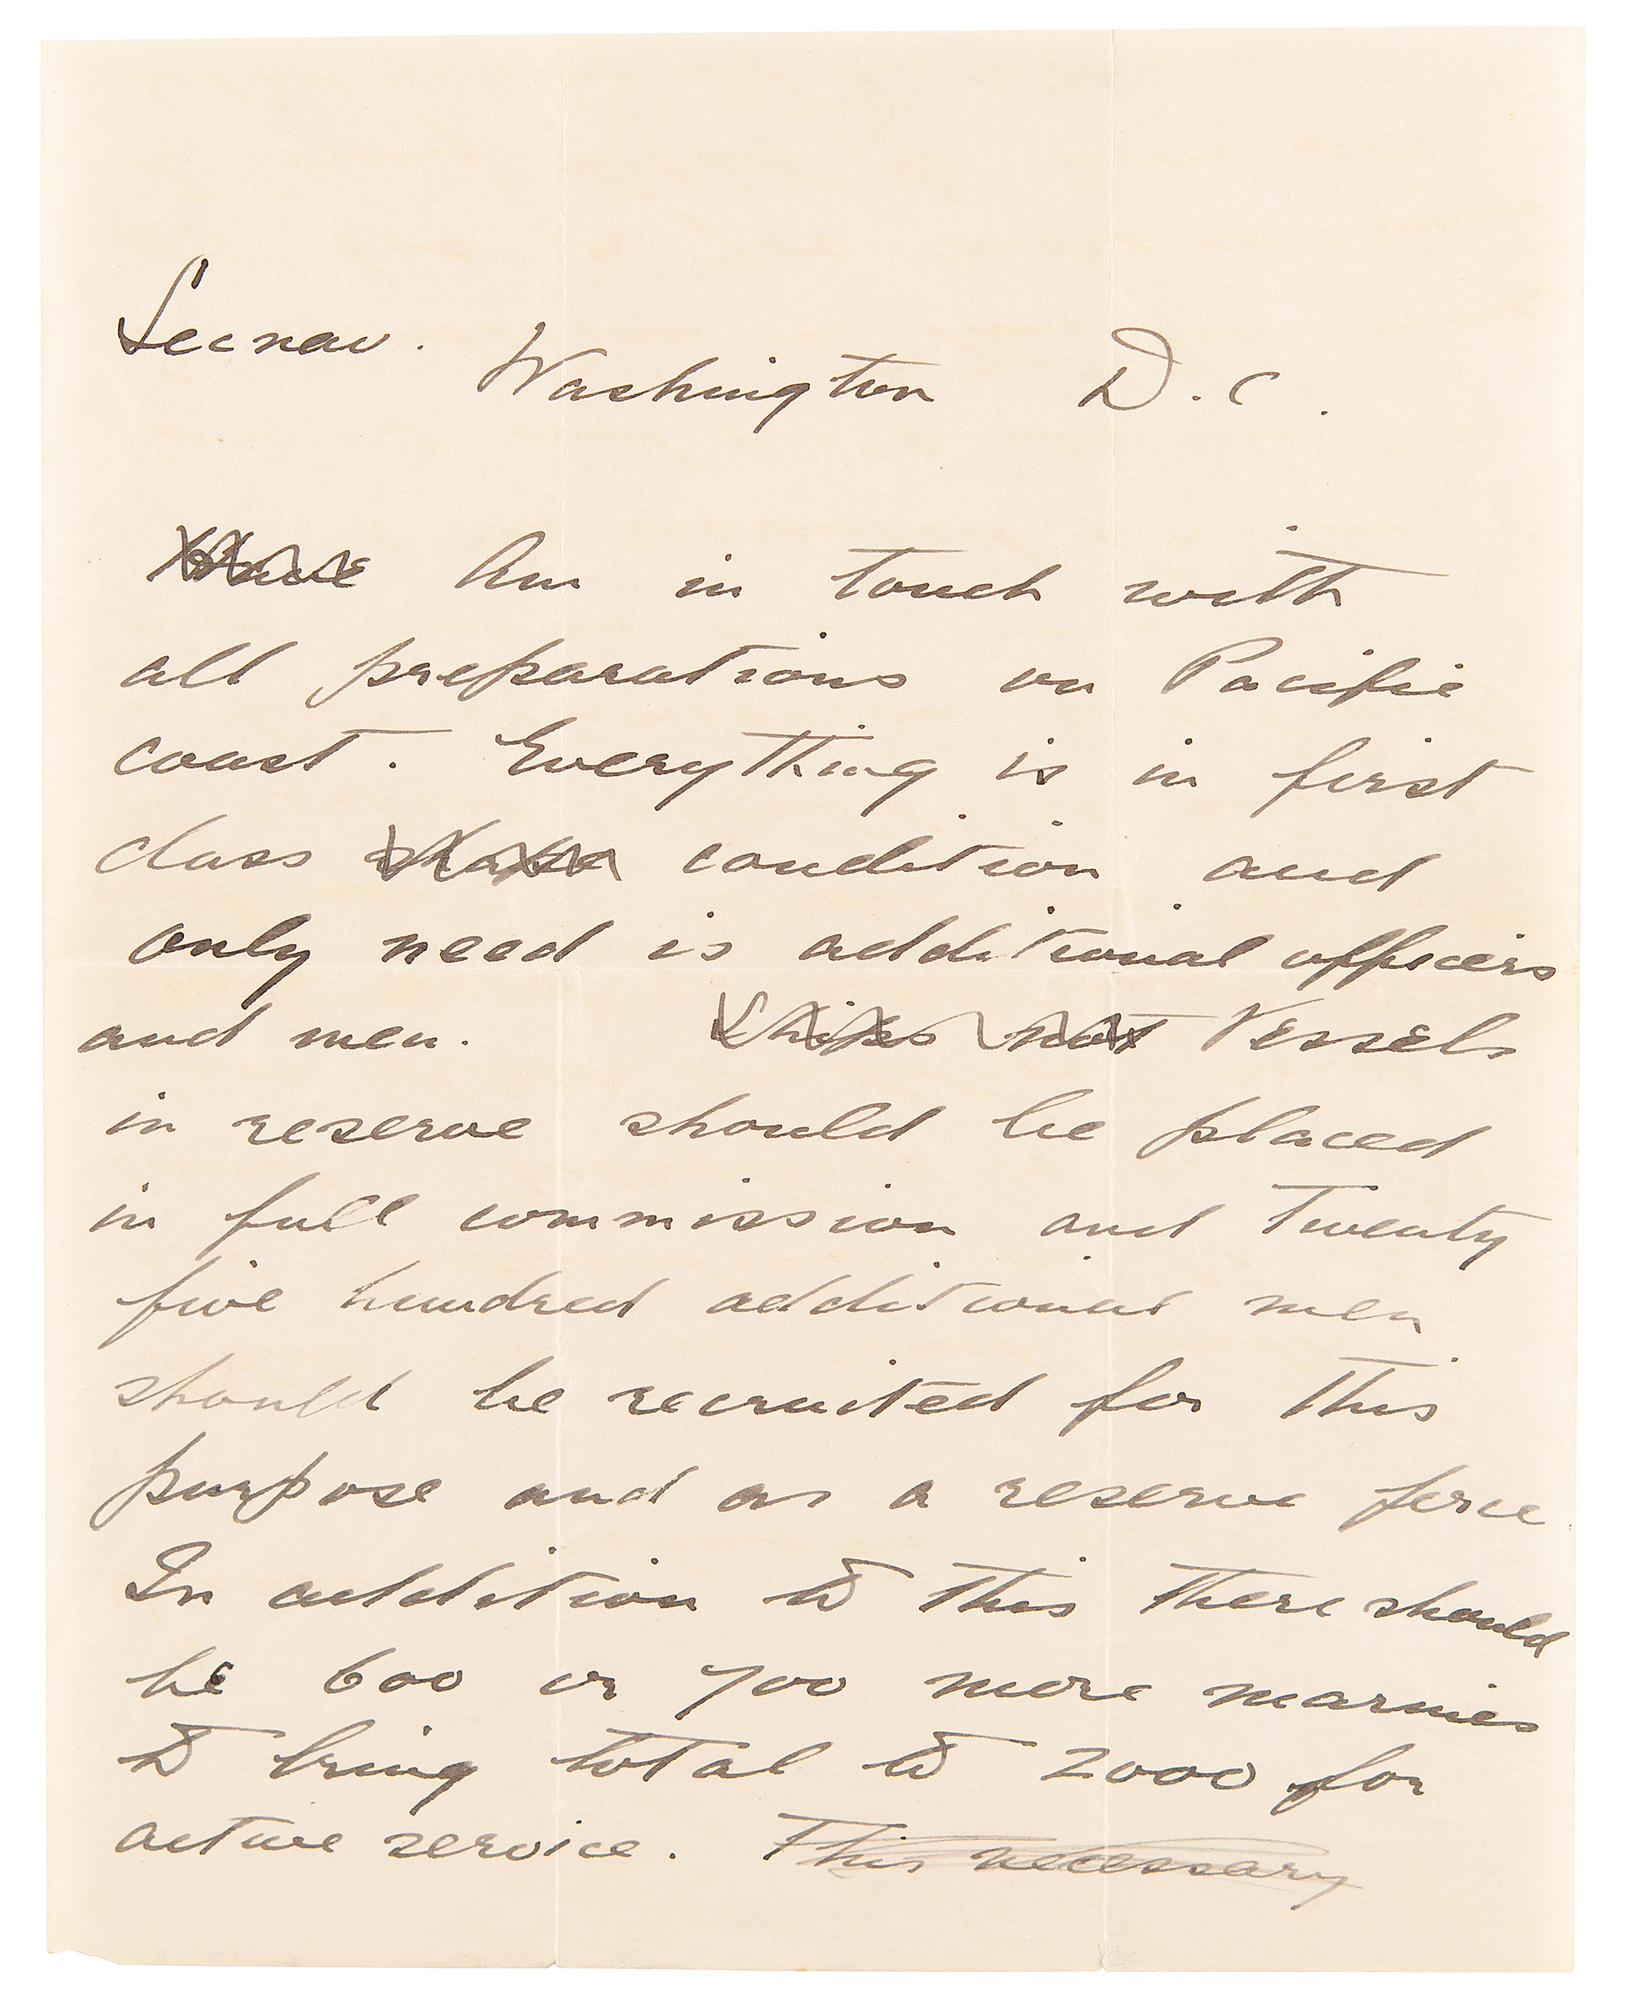 Secnav.
Washington D.C.
Am in touch with
all preparations on Pacific
coast. Everything is in first
class condition and
only need is additional officers
and men. Ships not Vessels
in reserve should be placed
in full commission and twenty
five hundred additional men
should be recruited for this
purpose and as a reserve force.
In addition to this there should
be 600 or 700 more marines
to bring total to 2000 for
active service. This necessary